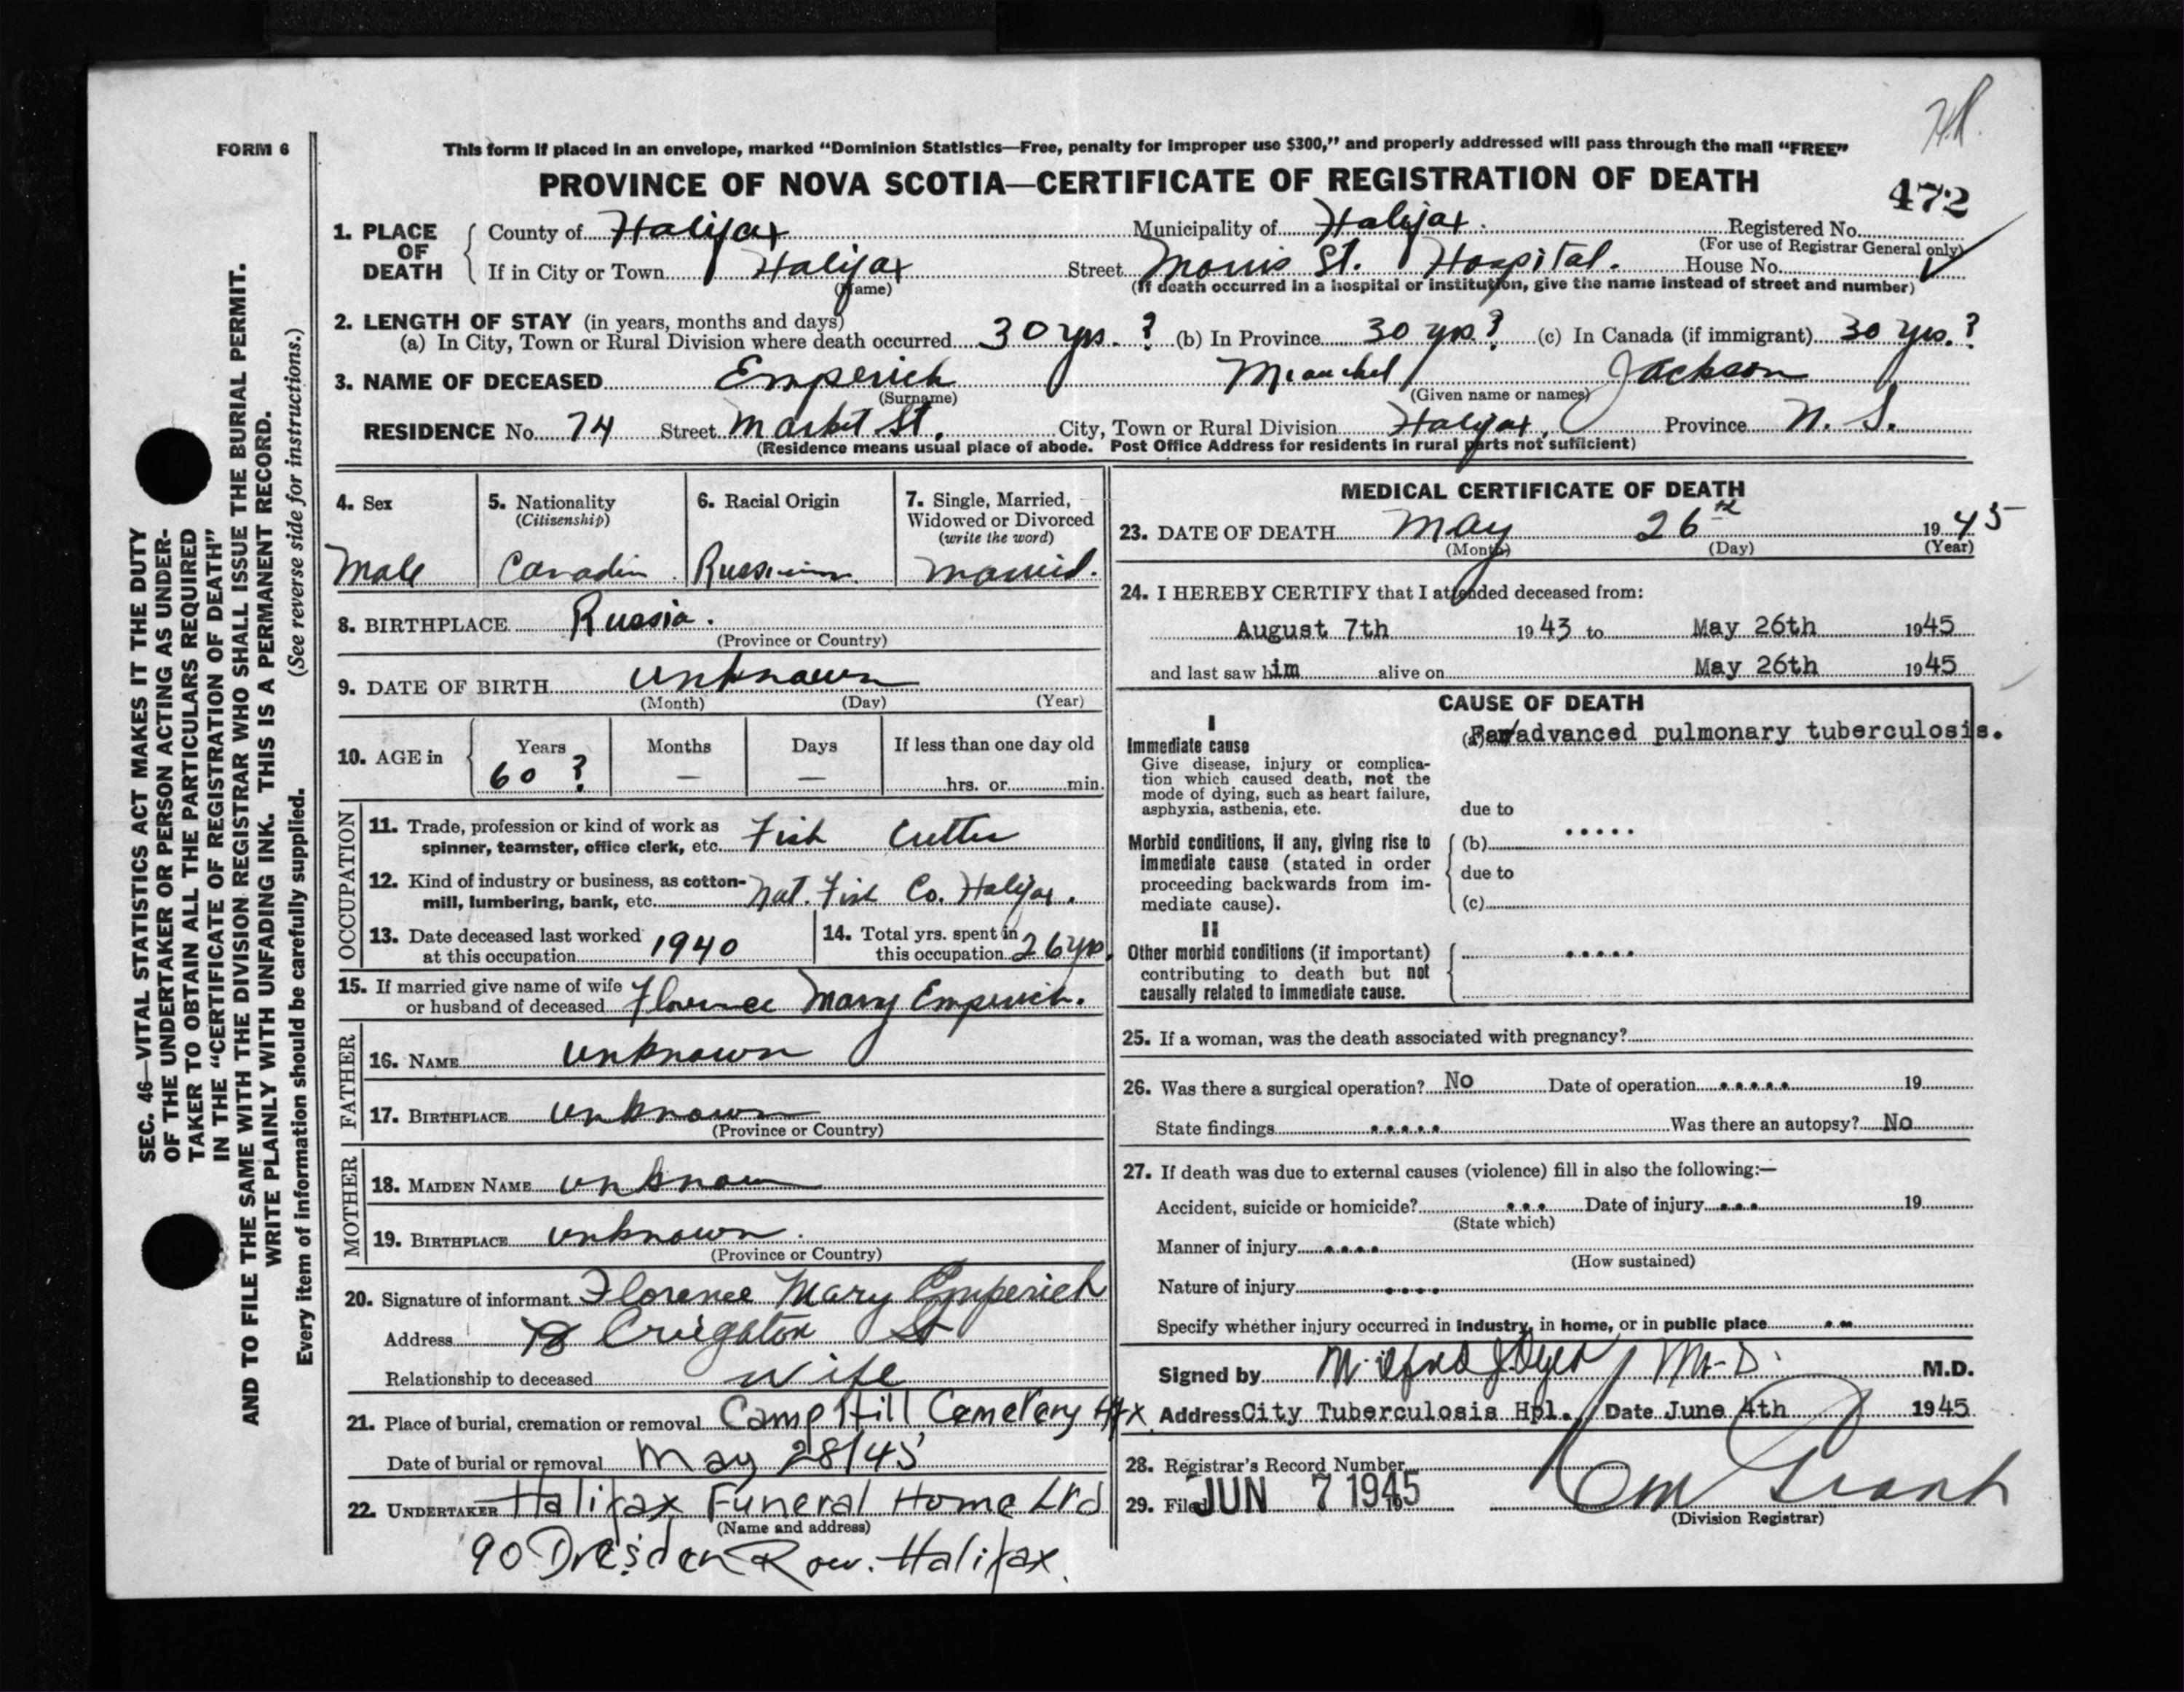 FORM 6
This form if placed in an envelope, marked “Dominion Statistics—Free, penalty for improper use $300,” and properly addressed will pass through the mail “FREE”
PROVINCE OF NOVA SCOTIA—CERTIFICATE OF REGISTRATION OF DEATH
472
1. PLACE OF DEATH
County of Halifax Municipality of Halifax. Registered No.
(For use of Registrar General only)
If in City or Town Halifax Street Morris St. Hospital. House No.
(Name) (If death occurred in a hospital or institution, give the name instead of street and number)
2. LENGTH OF STAY (in years, months and days)
(a) In City, Town or Rural Division where death occurred 30 yrs. ? (b) In Province 30 yrs? (c) In Canada (if immigrant) 30 yrs. ?
3. NAME OF DECEASED Emperich Jackson
(Surname) (Given name or names)
RESIDENCE No. 74 Street Market St. City, Town or Rural Division Halifax, Province N. S.
(Residence means usual place of abode. Post Office Address for residents in rural parts not sufficient)
4. Sex
Male
5. Nationality
(Citizenship)
Canadin
6. Racial Origin
Russian
7. Single, Married,
Widowed or Divorced
(write the word)
Married.
8. BIRTHPLACE Russia.
(Province or Country)
9. DATE OF BIRTH unknown
(Month) (Day) (Year)
10. AGE in
Years Months Days If less than one day old
60 ? — — hrs. or min.
OCCUPATION
11. Trade, profession or kind of work as
spinner, teamster, office clerk, etc. Fish Cutter
12. Kind of industry or business, as cotton-
mill, lumbering, bank, etc. Nat. Fish Co. Halifax.
13. Date deceased last worked
at this occupation 1940
14. Total yrs. spent in
this occupation 26 yrs.
15. If married give name of wife
or husband of deceased Florence Mary Emperich.
FATHER
16. NAME unknown
17. BIRTHPLACE unknown
(Province or Country)
MOTHER
18. MAIDEN NAME unknown
19. BIRTHPLACE unknown.
(Province or Country)
20. Signature of informant Florence Mary Emperich
Address Creighton St
Relationship to deceased Wife
21. Place of burial, cremation or removal Camp Hill Cemetery Hfx
Date of burial or removal May 28/45
22. UNDERTAKER Halifax Funeral Home Ltd
(Name and address)
90 Dresden Row. Halifax.
MEDICAL CERTIFICATE OF DEATH
23. DATE OF DEATH May 26th 1945
(Month) (Day) (Year)
24. I HEREBY CERTIFY that I attended deceased from:
August 7th 1943 to May 26th 1945
and last saw him alive on May 26th 1945
CAUSE OF DEATH
I
Immediate cause
Give disease, injury or complica-
tion which caused death, not the
mode of dying, such as heart failure,
asphyxia, asthenia, etc.
(a) Far advanced pulmonary tuberculosis.
due to
.....
Morbid conditions, if any, giving rise to
immediate cause (stated in order
proceeding backwards from im-
mediate cause).
(b)
due to
(c)
II
Other morbid conditions (if important)
contributing to death but not
causally related to immediate cause.
.....
25. If a woman, was the death associated with pregnancy?
26. Was there a surgical operation? No Date of operation ..... 19
State findings ..... Was there an autopsy? No
27. If death was due to external causes (violence) fill in also the following:—
Accident, suicide or homicide? ... Date of injury ... 19
(State which)
Manner of injury ....
(How sustained)
Nature of injury ....
Specify whether injury occurred in industry, in home, or in public place ..
Signed by M-D. M.D.
Address City Tuberculosis Hpl. Date June 4th 1945
28. Registrar's Record Number
29. Filed JUN 7 1945 19
Grant
(Division Registrar)
SEC. 46—VITAL STATISTICS ACT MAKES IT THE DUTY
OF THE UNDERTAKER OR PERSON ACTING AS UNDER-
TAKER TO OBTAIN ALL THE PARTICULARS REQUIRED
IN THE “CERTIFICATE OF REGISTRATION OF DEATH”
AND TO FILE THE SAME WITH THE DIVISION REGISTRAR WHO SHALL ISSUE THE BURIAL PERMIT.
WRITE PLAINLY WITH UNFADING INK. THIS IS A PERMANENT RECORD.
Every item of information should be carefully supplied. (See reverse side for instructions.)